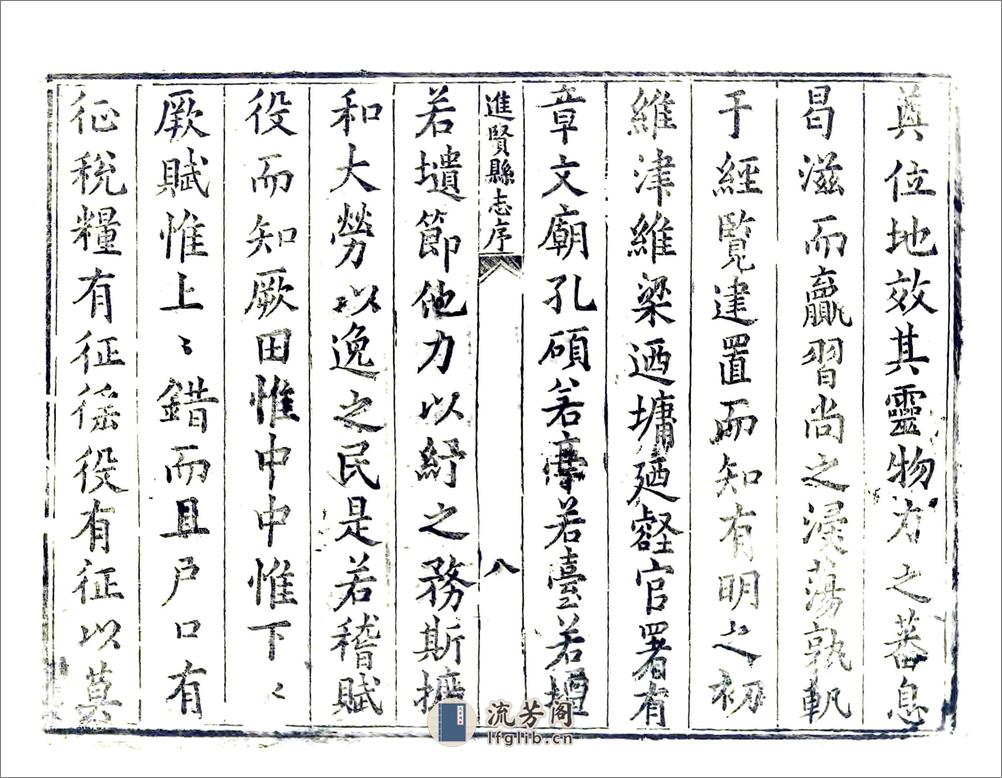 奠位地效其靈物方之蕃息
昌滋而贏習尚之浸蕩孰軌
于經覽建置而知有明之初
維津維梁迺墉廼壑官署有
章文廟孔碩若亭若臺若壇
進賢縣志序
八
若墳節他力以紓之務斯摭
和大勞以逸之民是若稽賦
役而知厥田惟中中惟下〻
厥賦惟上〻錯而且戶口有
征稅糧有征徭役有征以莫
流芳阁
lfglib.cn